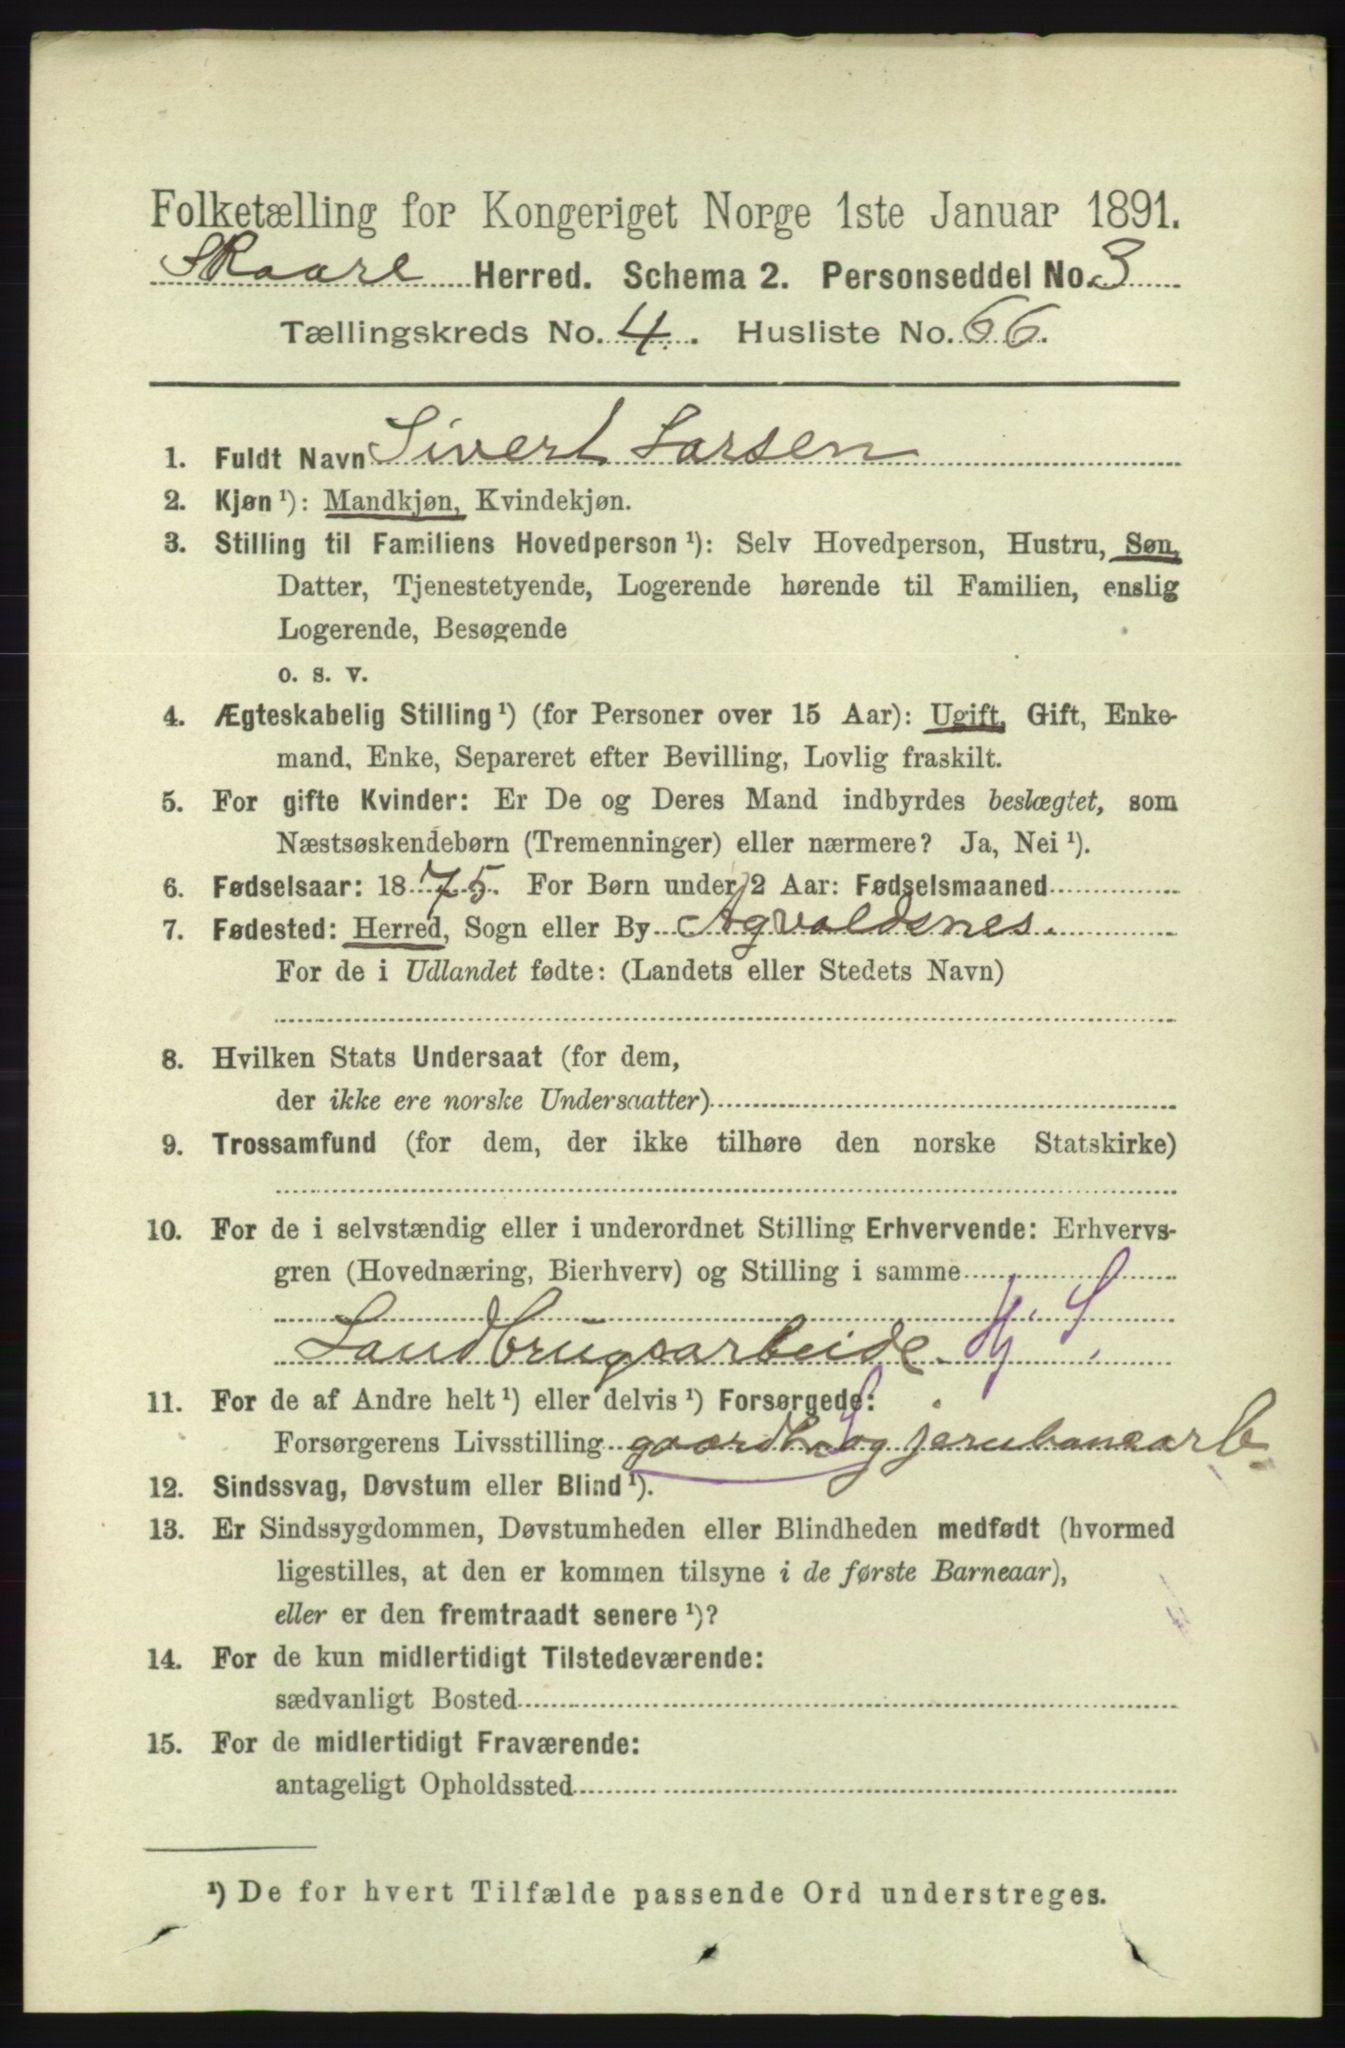 Folketælling for Kongeriget Norge 1ste Januar 1891.
Skaare Herred. Schema 2. Personseddel No. 3
Tællingskreds No. 4. Husliste No. 66.
1. Fuldt Navn Sivert Larsen
2. Kjøn ¹): Mandkjøn, Kvindekjøn.
3. Stilling til Familiens Hovedperson ¹): Selv Hovedperson, Hustru, Søn,
Datter, Tjenestetyende, Logerende hørende til Familien, enslig
Logerende, Besøgende
o. s. v.
4. Ægteskabelig Stilling ¹) (for Personer over 15 Aar): Ugift, Gift, Enke-
mand, Enke, Separeret efter Bevilling, Lovlig fraskilt.
5. For gifte Kvinder: Er De og Deres Mand indbyrdes beslægtet, som
Næstsøskendebørn (Tremenninger) eller nærmere? Ja, Nei ¹).
6. Fødselsaar: 1875. For Børn under 2 Aar: Fødselsmaaned
7. Fødested: Herred, Sogn eller By Agvaldsnes.
For de i Udlandet fødte: (Landets eller Stedets Navn)
8. Hvilken Stats Undersaat (for dem,
der ikke ere norske Undersaatter)
9. Trossamfund (for dem, der ikke tilhøre den norske Statskirke)
10. For de i selvstændig eller i underordnet Stilling Erhvervende: Erhvervs-
gren (Hovednæring, Bierhverv) og Stilling i samme
Landbrugsarbeide.
11. For de af Andre helt ¹) eller delvis ¹) Forsørgede:
Forsørgerens Livsstilling gaardbr. og jernbanearb
12. Sindssvag, Døvstum eller Blind ¹).
13. Er Sindssygdommen, Døvstumheden eller Blindheden medfødt (hvormed
ligestilles, at den er kommen tilsyne i de første Barneaar),
eller er den fremtraadt senere ¹)?
14. For de kun midlertidigt Tilstedeværende:
sædvanligt Bosted
15. For de midlertidigt Fraværende:
antageligt Opholdssted
¹) De for hvert Tilfælde passende Ord understreges.